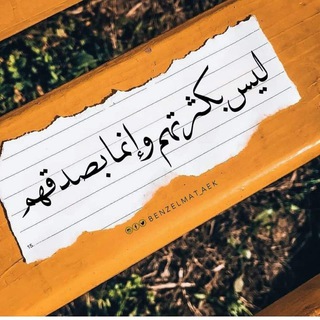 ليس بكثرتهم وإنما بصدقهم
BENZELMAT_AEK
15